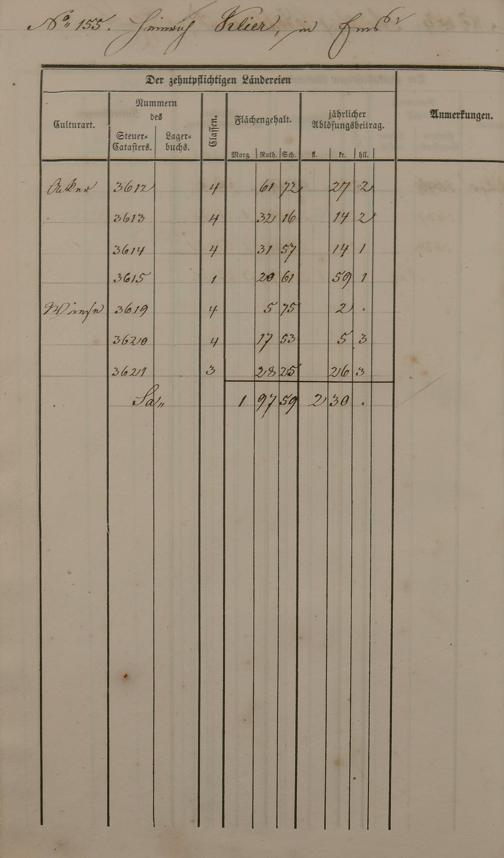 No 155. Heinrich Klier, in Ems
Der zehntpflichtigen Ländereien
Culturart.
Nummern
des
Steuer-
Catasters.
Lager-
buchs.
Classen.
Flächengehalt.
Morg. Ruth. Sch.
jährlicher
Ablösungsbeitrag.
fl. kr. hll.
Anmerkungen.
Acker 3612 4 61 72 27 2
3613 4 32 16 14 2
3614 4 31 57 14 1
3615 1 20 61 59 1
Wiese 3619 4 5 75 2 .
3620 4 17 53 5 3
3621 3 28 25 26 3
Sa„ 1 97 59 2 30 .